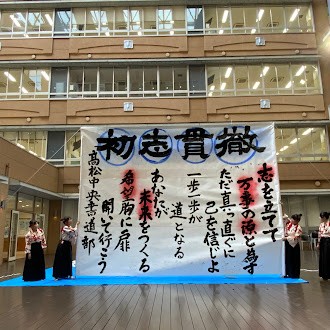 初志貫徹
志を立てて
万事の源と為す
ただ真っ直ぐに
己を信じよ
一歩一歩が
道となる
あなたが
未来をつくる
希望胸に扉
開いて行こう
高松中央書道部